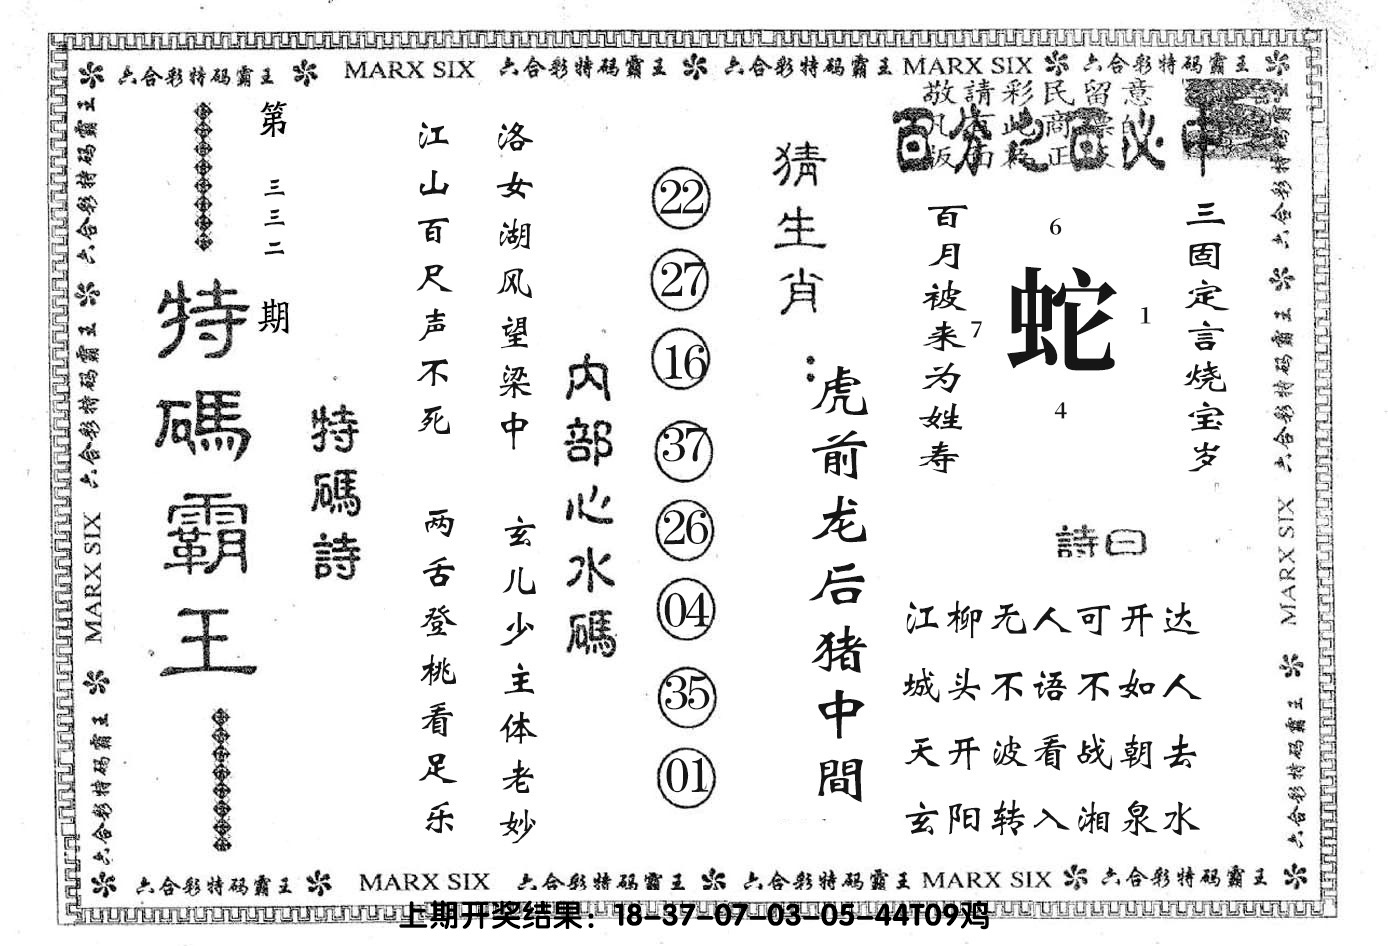 六合彩特码霸王 MARX SIX 六合彩特码霸王 六合彩特码霸王 MARX SIX 六合彩特码霸王
敬請彩民留意
百分之百必中
第三三二期
特碼霸王
特碼詩
江山百尺声不死 两舌登桃看足乐
洛女湖风望梁中 玄儿少主体老妙
内部心水碼
22
27
16
37
26
04
35
01
猜生肖:
虎前龙后猪中間
百月被来为姓寿
6
7 蛇 1
4
三固定言烧宝岁
詩曰
江柳无人可开达
城头不语不如人
天开波看战朝去
玄阳转入湘泉水
六合彩特码霸王 MARX SIX 六合彩特码霸王 六合彩特码霸王
六合彩特码霸王 MARX SIX 六合彩特码霸王
六合彩特码霸王 MARX SIX 六合彩特码霸王 六合彩特码霸王 MARX SIX 六合彩特码霸王
上期开奖结果：18-37-07-03-05-44T09鸡